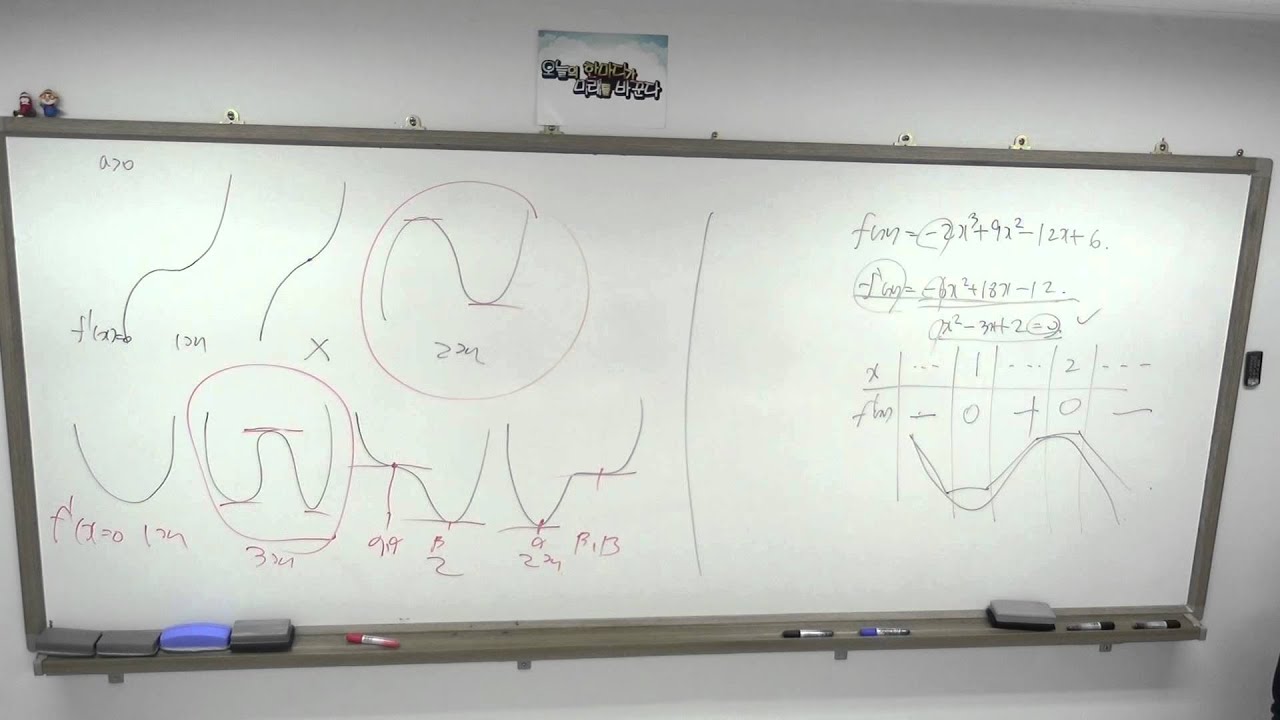 오늘의 한마디가
미래를 바꾼다
a>0
f'(x)=0 1개 X 2개
f'(x)=0 1개 3개 α,α β 2 α 2개 β,β
f(x)=-2x³+9x²-12x+6.
f'(x)=-6x²+18x-12.
x²-3x+2=0. ✓
x ··· 1 ··· 2 ···
f'(x) - 0 + 0 -